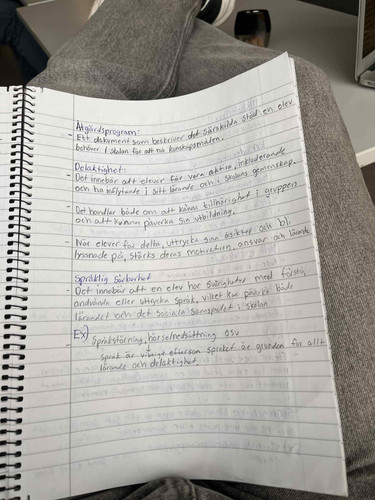 Åtgärdsprogram:
- Ett dokument som beskriver det särskilda stöd en elev
behöver i skolan för att nå kunskapsmålen.
Delaktighet:
- Det innebär att elever får vara aktiva, inkluderande
och ha inflytande i sitt lärande och i skolans gemenskap.
- Det handlar både om att känna tillhörighet i gruppen
och att kunna påverka sin utbildning.
- När elever får delta, uttrycka sina åsikter och bli
lyssnade på, stärks deras motivation, ansvar och lärande
Språklig sårbarhet
- Det innebär att en elev har svårigheter med förstå,
använda eller uttrycka språk, vilket kan påverka både
lärandet och det sociala samspelet i skolan
Ex) Språkstörning, hörselnedsättning osv
språk är viktigt eftersom språket är grunden för allt
lärande och delaktighet.